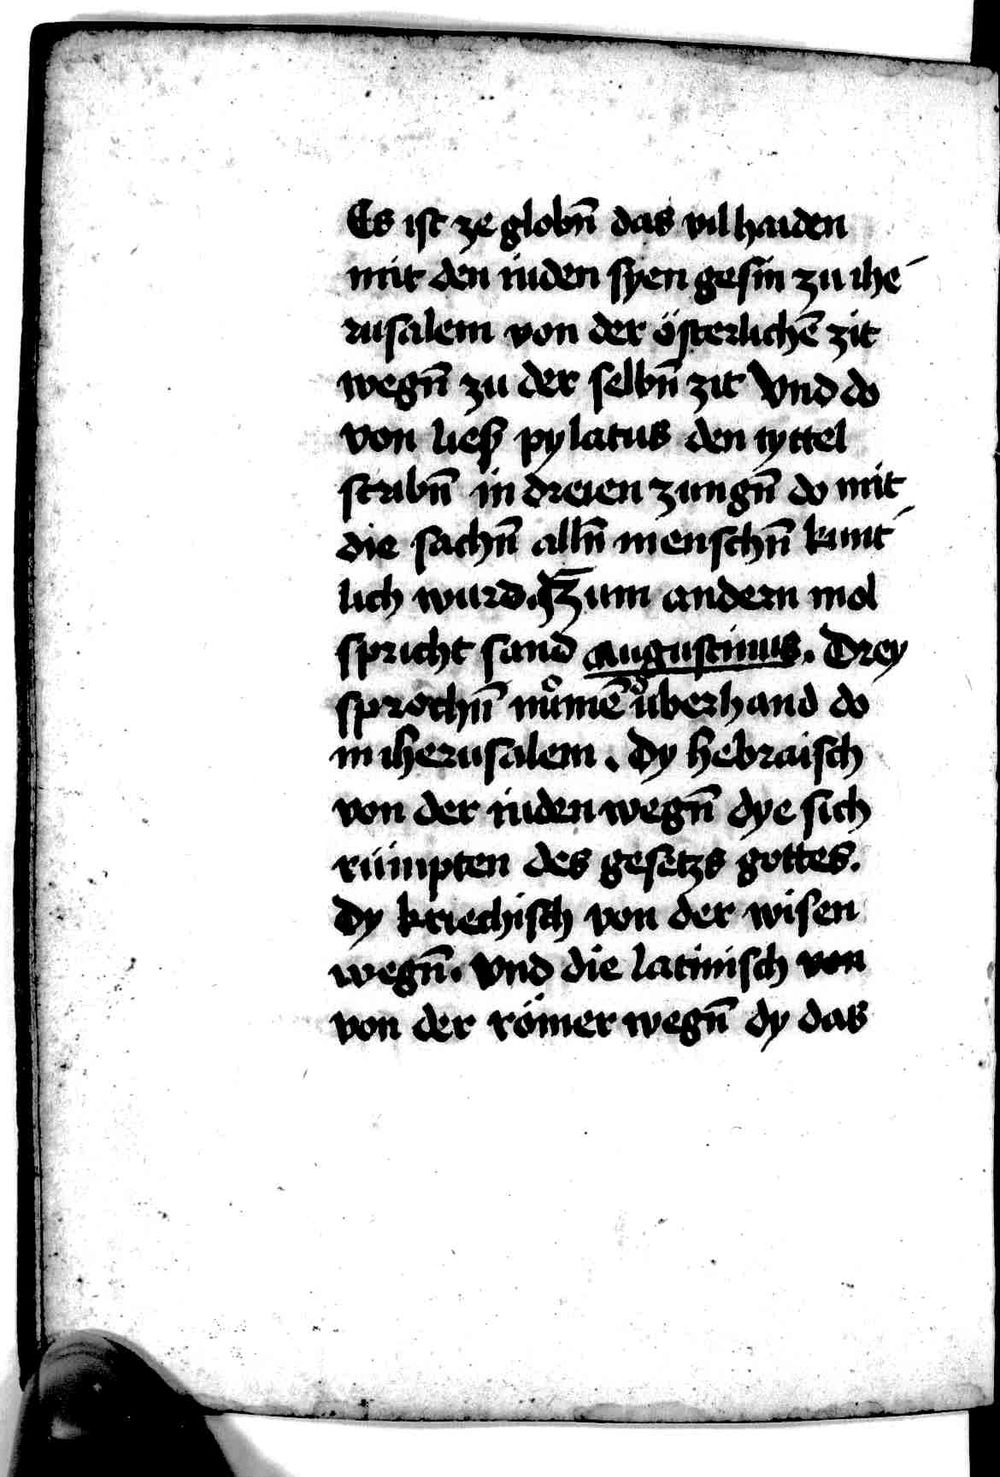 Es ist ze globn̄ das vil haiden
mit den iuden syen gesin zu ihe-
rusalem von der österlichē zit
wegn̄ zu der selbn̄ zit Vnd do
von ließ pylatus den tyttel
scribn̄ in dreien zungn̄ do mit
die sachn̄ alln̄ menschn̄ kunt-
lich wurd. Zum andern mol
spricht sand augustinus. Drey
sprochn̄ nůmē ůberhand do
in iherusalem. Dy hebraisch
von der iuden wegn̄ dye sich
rümpten des gesetzs gottes.
Dy kriechisch von der wisen
wegn̄. Vnd die latinisch von
von der römer wegn̄ dy das